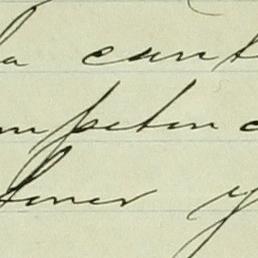 la cant
mpeten c
tener y